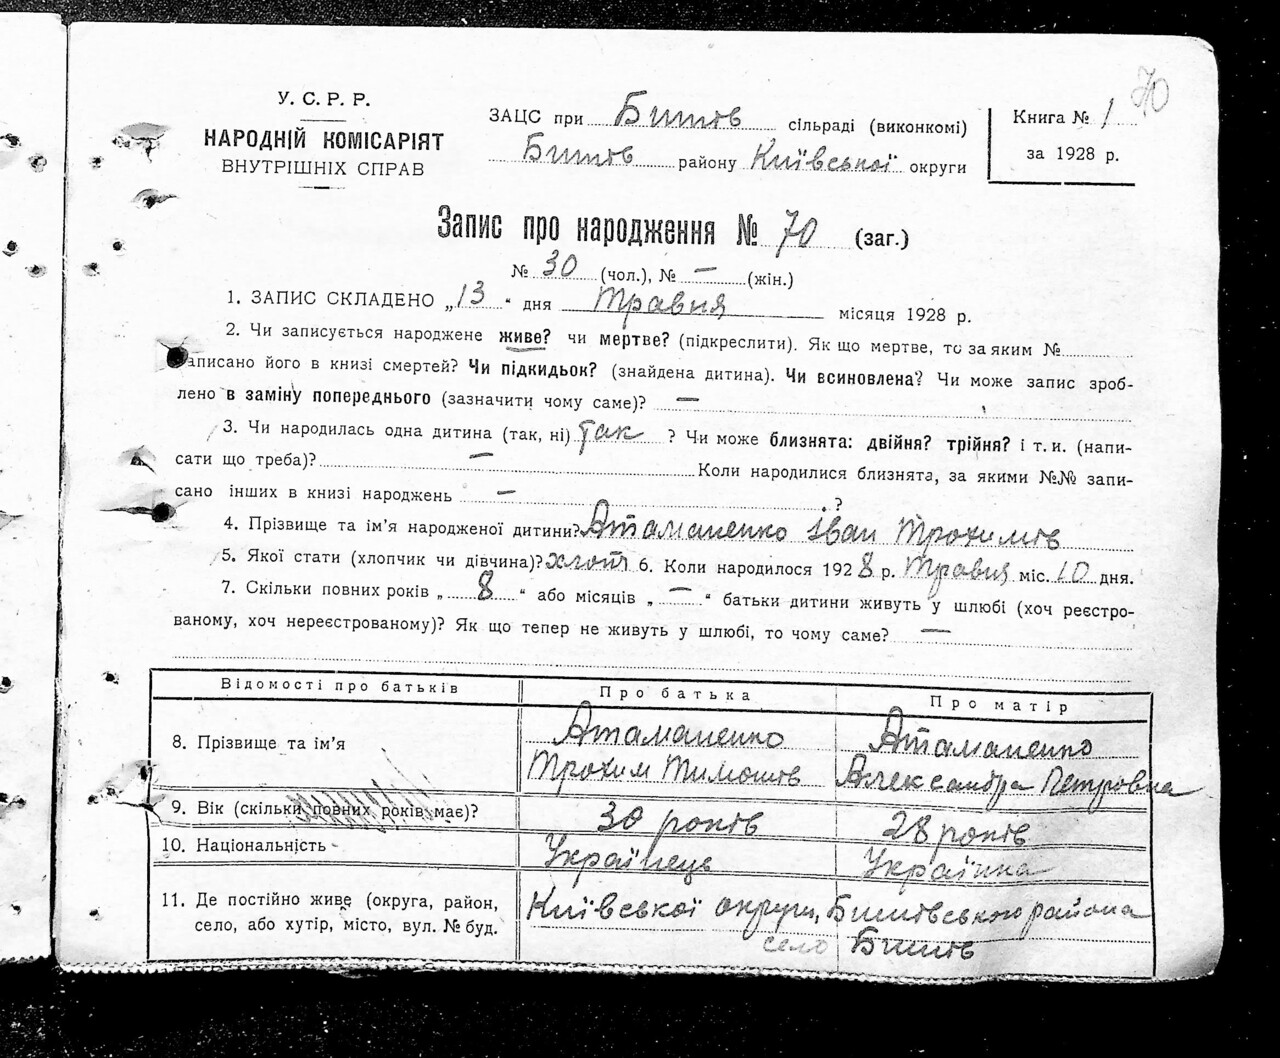 70
У. С. Р. Р.
НАРОДНІЙ КОМІСАРІЯТ
ВНУТРІШНІХ СПРАВ
ЗАЦС при Бишів сільраді (виконкомі)
Бишів району Київської округи
Книга № 1
за 1928 р.
Запис про народження № 70 (заг.)
№ 30 (чол.), № — (жін.)
1. ЗАПИС СКЛАДЕНО „13“ дня Травня місяця 1928 р.
2. Чи записується народжене живе? чи мертве? (підкреслити). Як що мертве, то за яким №
записано його в книзі смертей? Чи підкидьок? (знайдена дитина). Чи всиновлена? Чи може запис зроб-
лено в заміну попереднього (зазначити чому саме)? —
3. Чи народилась одна дитина (так, ні) так ? Чи може близнята: двійня? трійня? і т. и. (напи-
сати що треба)? — Коли народилися близнята, за якими №№ запи-
сано інших в книзі народжень — ?
4. Прізвище та ім’я народженої дитини? Атаманенко Іван Трохимів
5. Якої стати (хлопчик чи дівчина)? хлоп 6. Коли народилося 1928 р. Травня міс. 10 дня.
7. Скільки повних років „ 8 “ або місяців „ — “ батьки дитини живуть у шлюбі (хоч реєстро-
ваному, хоч нереєстрованому)? Як що тепер не живуть у шлюбі, то чому саме? —
Відомості про батьків Про батька Про матір
8. Прізвище та ім’я Атаманенко Трохим Тимошів Атаманенко Александра Петровна
9. Вік (скільки повних років має)? 30 років 28 років
10. Національність Українець Українка
11. Де постійно живе (округа, район, Київської округи, Бишівського района
село, або хутір, місто, вул. № буд. село Бишів